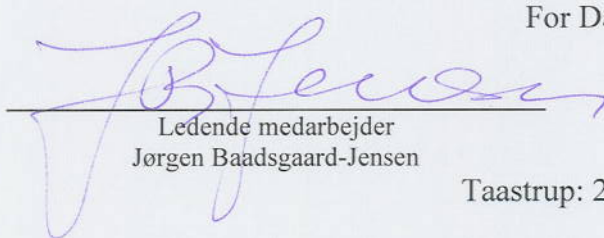 For Da
JB Jensen
Ledende medarbejder
Jørgen Baadsgaard-Jensen
Taastrup: 2